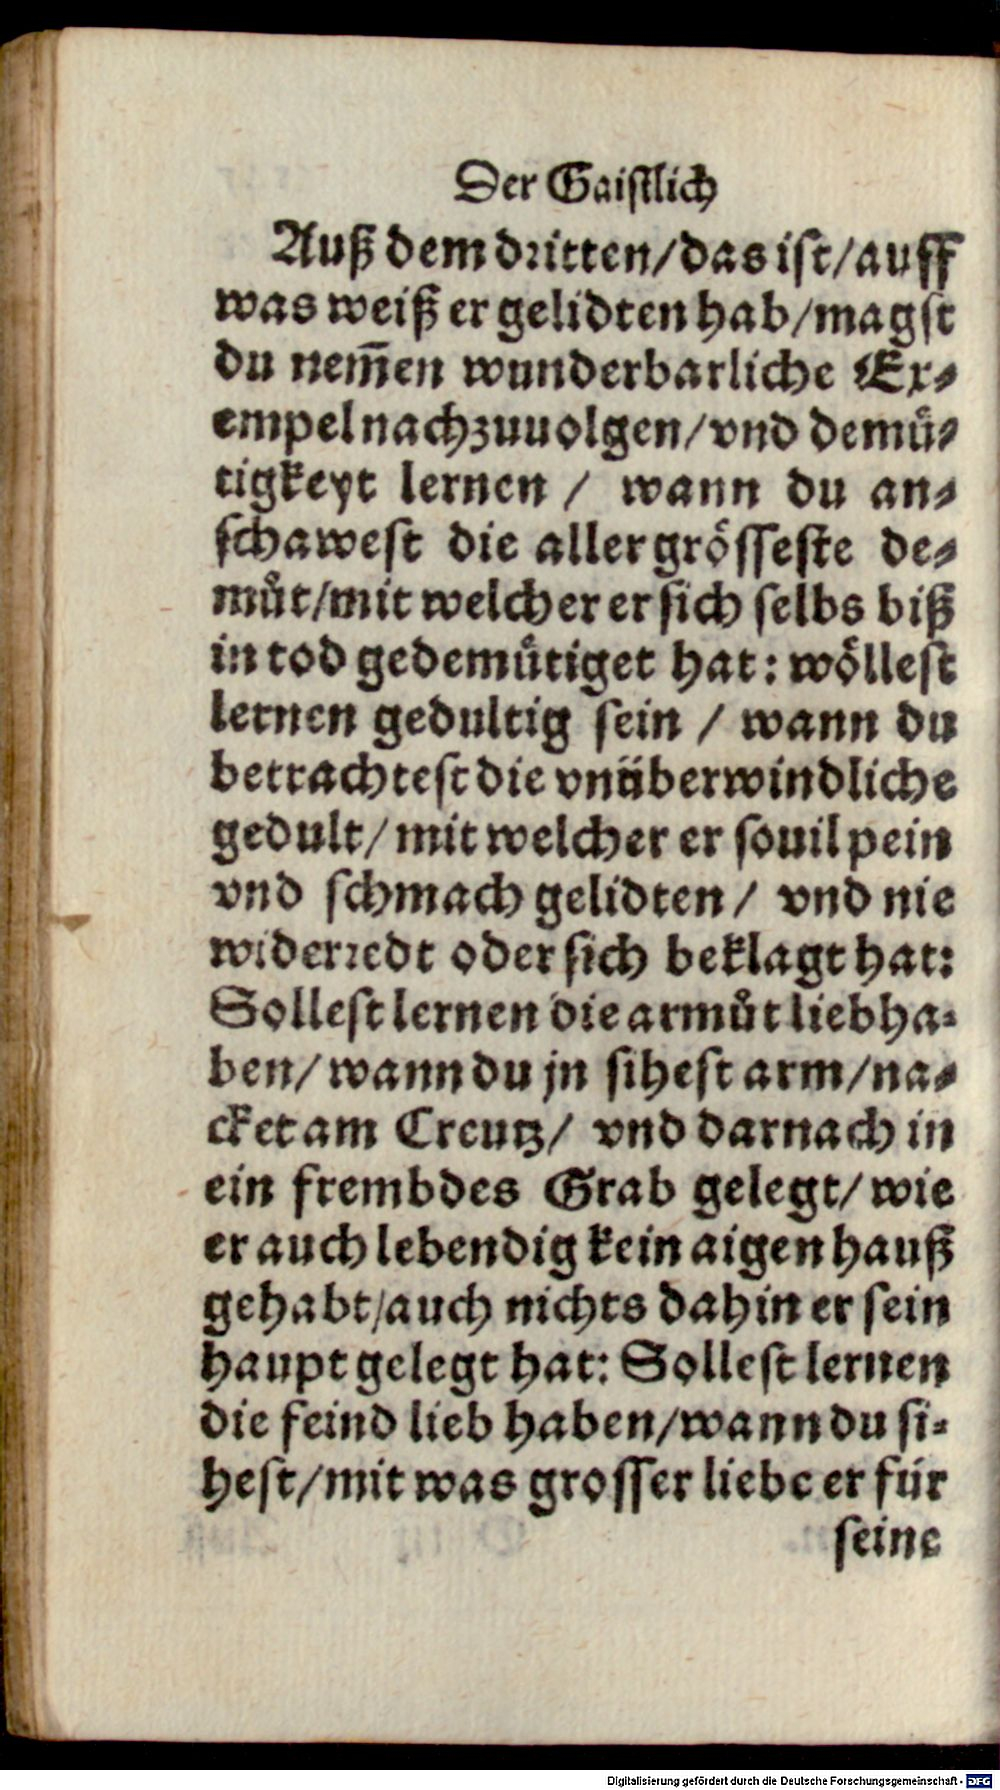 Der Gaistlich
Auß dem dritten/das ist/auff
was weiß er gelidten hab/magst
du nem̃en wunderbarliche Ex⸗
empel nachzuuolgen/vnd demuͤ⸗
tigkeyt lernen / wann du an⸗
schawest die allergroͤsseste de⸗
muͦt/mit welcher er sich selbs biß
in tod gedemuͤtiget hat: woͤllest
lernen gedultig sein / wann du
betrachtest die vnüberwindliche
gedult/mit welcher er souil pein
vnd schmach gelidten/ vnd nie
widerredt oder sich beklagt hat:
Sollest lernen die armuͦt lieb ha⸗
ben/wann du jn sihest arm/na⸗
cket am Creutz/ vnd darnach in
ein frembdes Grab gelegt/wie
er auch lebendig kein aigen hauß
gehabt/auch nichts dahin er sein
haupt gelegt hat: Sollest lernen
die feind lieb haben/wann du si⸗
hest/mit was grosser liebe er für
seine
Digitalisierung gefördert durch die Deutsche Forschungsgemeinschaft - DFG